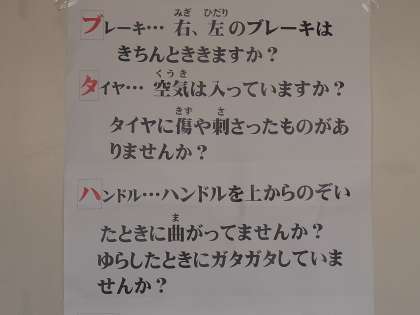 ブレーキ… 右、左のブレーキは
きちんとききますか？
タイヤ… 空気は入っていますか？
タイヤに傷や刺さったものがあ
りませんか？
ハンドル…ハンドルを上からのぞい
たときに曲がってませんか？
ゆらしたときにガタガタしていま
せんか？